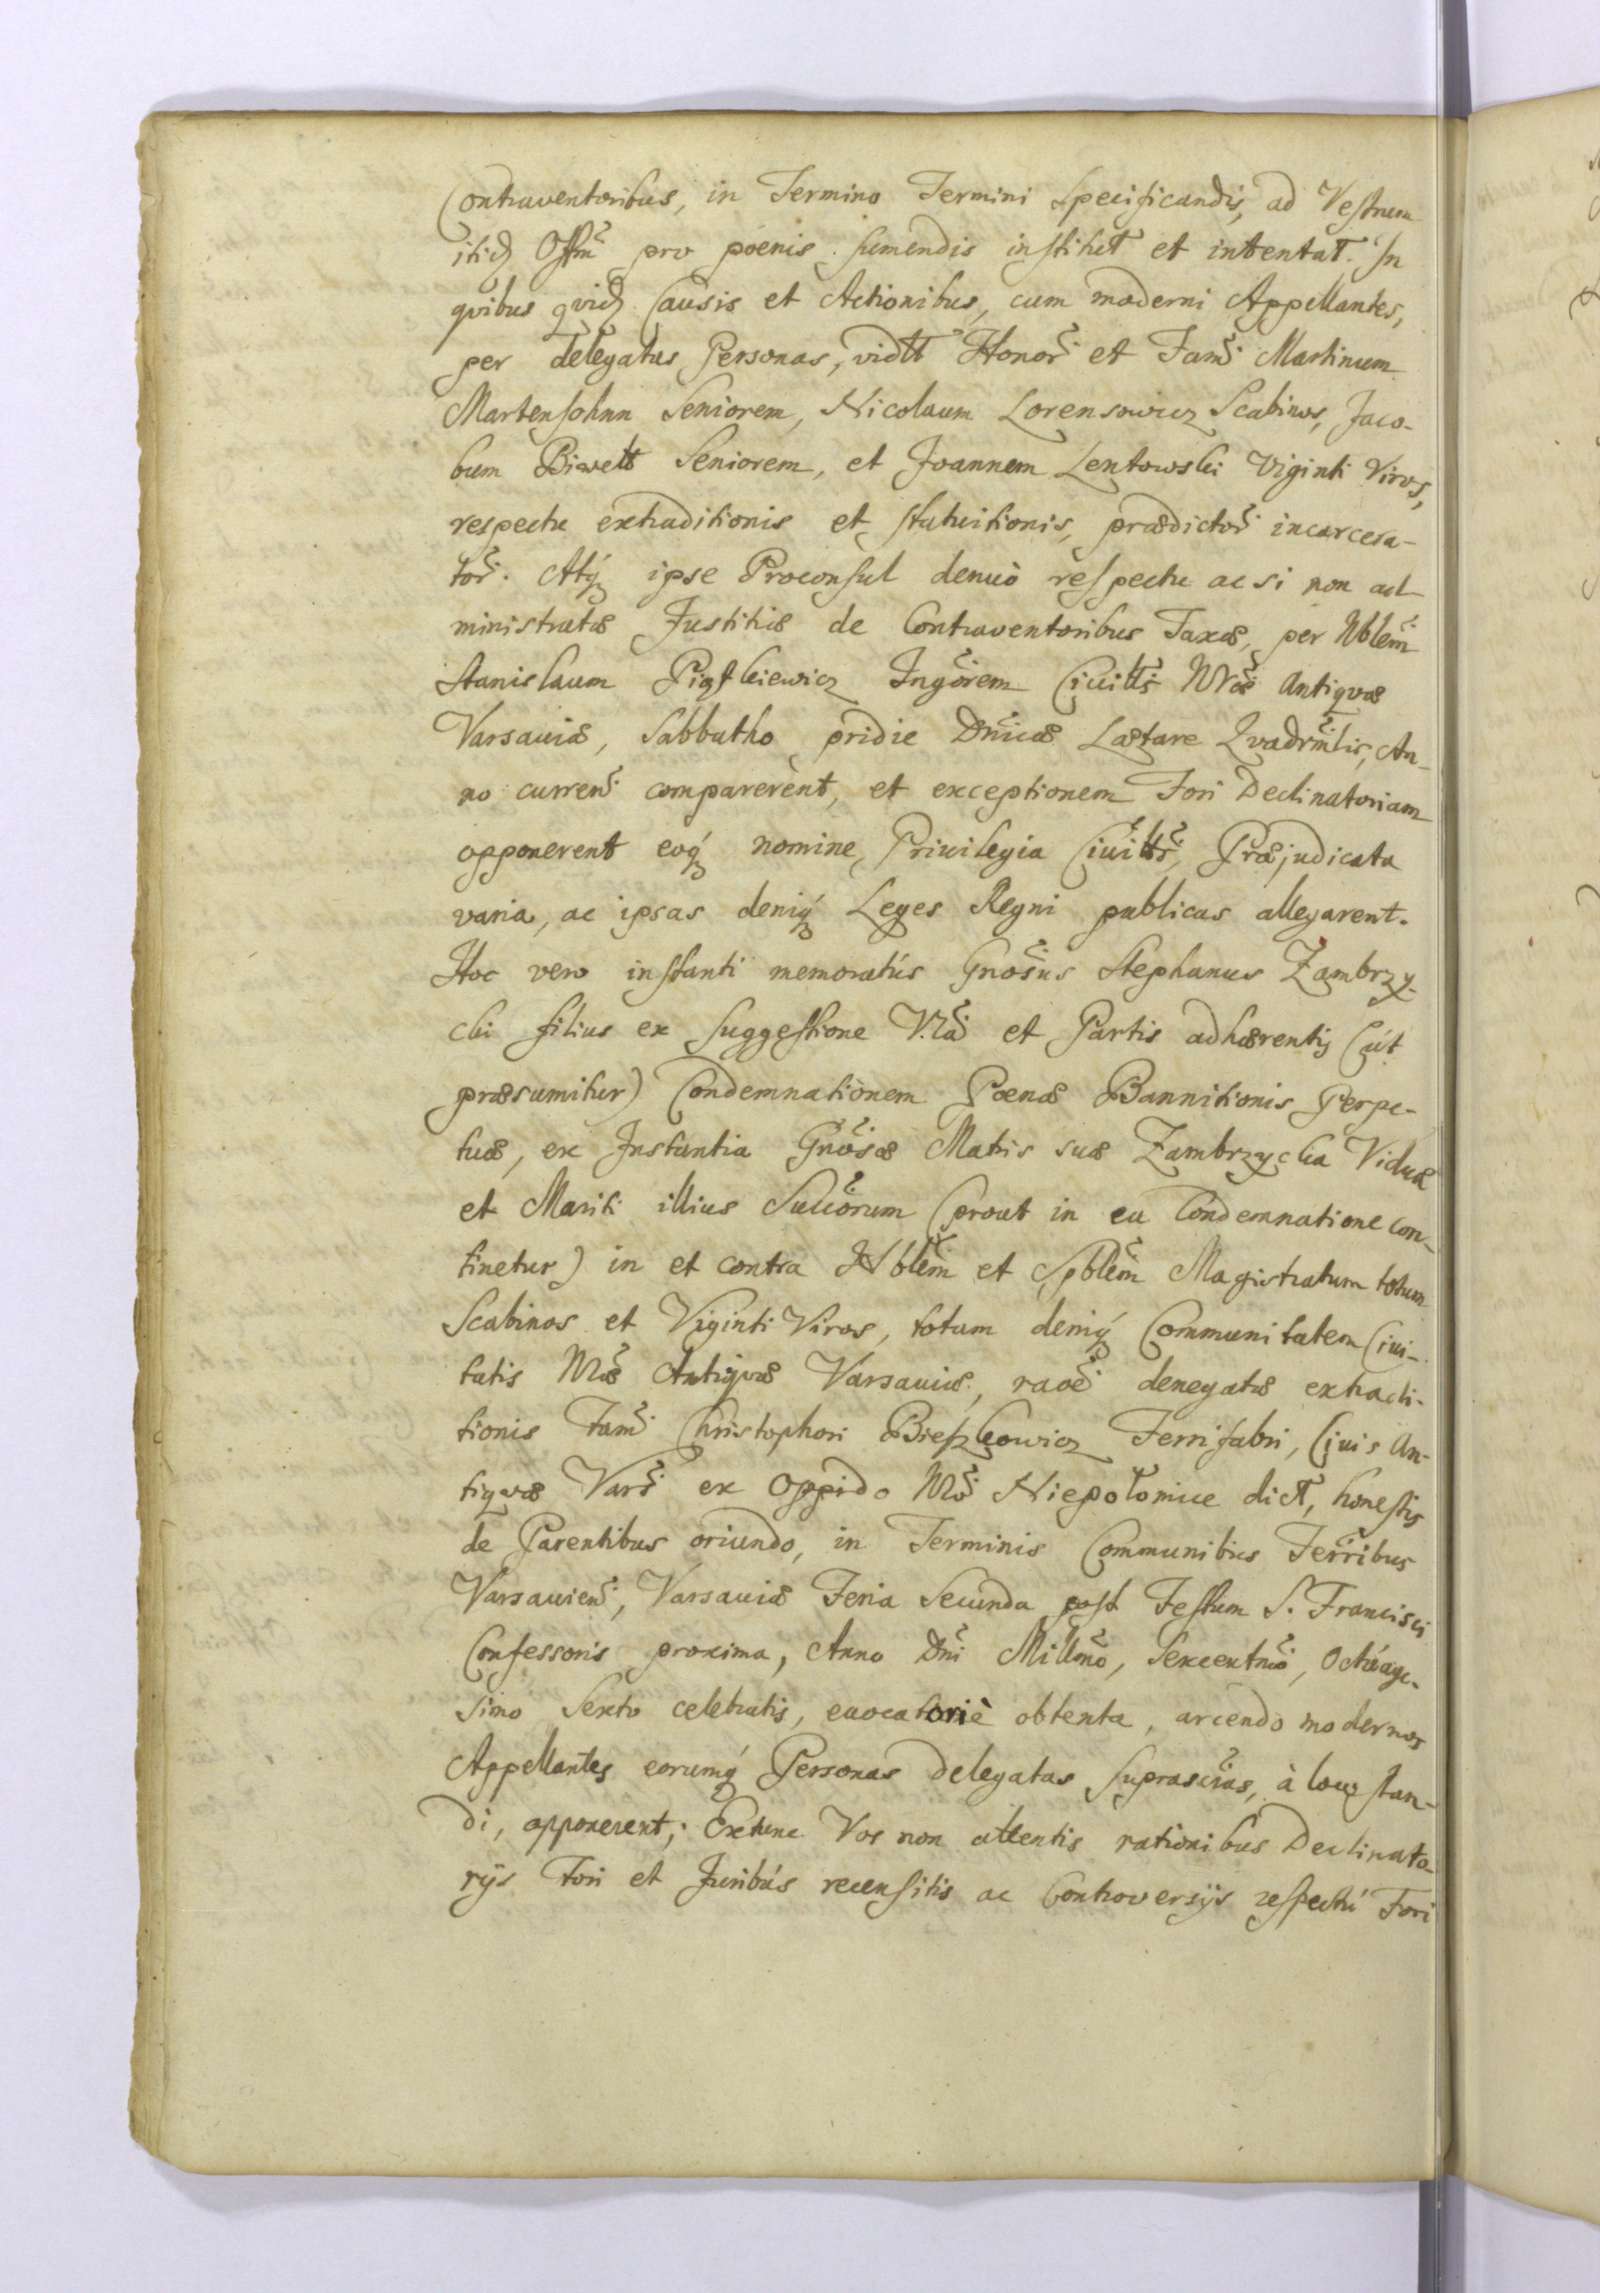 Contraventoribus, in Termino Termini Specificandis, ad Vestrum
itid Offm̃ pro poenis sumendis institut et intentat. In
quibus quid Causis et Actionibus, cum moderni Appellantes,
per delegatas Personas, vidtt Honor̃ et Fam̃ Martinum
Martensohnn Seniorem, Nicolaum Lorensowicz Scabinos, Jaco-
bum Biwett Seniorem, et Joannem Lentowski Viginti Viros,
respectu extraditionis et statuitionis, prædictor̃ incarcera-
tor̃. Atq ipse Proconsul denuò respectu ac si non ad-
ministratæ Justitiæ de Contraventoribus Taxæ, per Nblem̃
Stanislaum Pigłkiewicz Ingõrem Ciuittis̃ Nr̃æ Antiquæ
Varsauiæ, Sabbatho pridie Dñicæ Lætare Quadrm̃lis, An-
no curreñ comparerent, et exceptionem Fori Declinatoriam
opponerent eoq nomine, Priuilegia Ciuittis̃, Præjudicata
varia, ac ipsas deniq Leges Regni publicas allegarent.
Hoc vero instanti memoratús Gnõsus Stephanus Zambrzy-
cki filius ex suggestione Vr̃a et Partis adhærentis (út
præsumitur) Condemnationem Poenæ Bannitionis Perpe-
tuæ, ex Instantia Gnõsæ Matris suæ Zambrzycka Viduæ
et Mariti illius Succõrum (prout in ea Condemnatione con-
tinetur) in et contra Nblem̃ et Spblem̃ Magistratum totum
Scabinos et Viginti Viros, totam deniq Communitatem Ciui-
tatis Nr̃æ Antiquæ Varsauiæ, raõe denegatæ extradi-
tionis Fam̃ Christophori Bieszkowicz Ferrifabri, Ciuis An-
tiquæ Vars̃ ex Oppido Nr̃o Niepołomice dict, honestis
de Parentibus oriundo, in Terminis Communibus Terr̃ibus
Varsauieñ, Varsauiæ Feria Secunda post Festum S. Francisci
Confessoris proxima, Anno Dñi Millm̃o, Sexcentm̃o, Octúage-
simo Sexto celebratis, euocatoriè obtenta, arcendo modernos
Appellantes eorumq Personas delegatas suprascr̃as, à loco stan-
di, opponerent; Extunc Vos non attentis rationibus Declinato-
rijs Fori et Juribús recensitis ac Controversijs respectú Fori